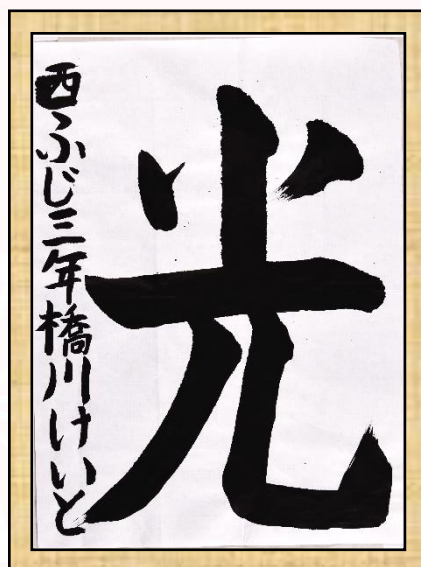 光
西ふじ三年橋川けいと